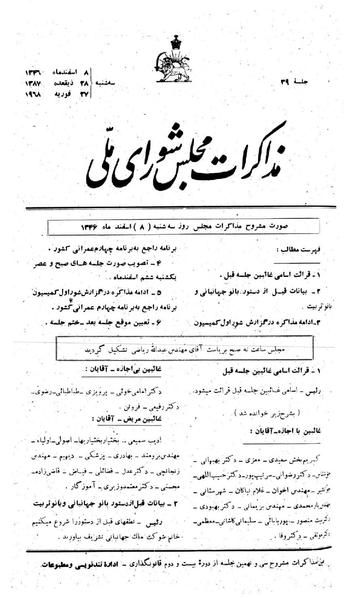 جلسه ۳۹
سه شنبه
۸ اسفندماه ۱۳۴۶
۲۸ ذیقعده ۱۳۸۷
۲۷ فوریه ۱۹۶۸
مذاکرات مجلس شورای ملی
صورت مشروح مذاکرات مجلس روز سه شنبه (۸) اسفند ماه ۱۳۴۶
فهرست مطالب:
۱- قرائت اسامی غائبین جلسه قبل.
۲- بیانات قبل از دستور: بانو جهانبانی و
بانو تربیت
۳- ادامه مذاکره در گزارش شور اول کمیسیون
برنامه راجع به برنامه چهارم عمرانی کشور.
۴- تصویب صورت جلسه های صبح و عصر
یکشنبه ششم اسفندماه.
۵- ادامه مذاکره در گزارش شور اول کمیسیون
برنامه راجع به برنامه چهارم عمرانی کشور.
۶- تعیین موقع جلسه بعد - ختم جلسه.
مجلس ساعت نه صبح بریاست آقای مهندس عبدالله ریاضی تشکیل گردید
۱- قرائت اسامی غائبین جلسه قبل
رئیس - اسامی غائبین جلسه قبل قرائت میشود.
(بشرح زیر خوانده شد)
غائبین با اجازه - آقایان:
کریم بخش سعیدی - معزی - دکتر بهبهانی -
مهندس اخوان - غلام نیاکان - شهرستانی -
مهندس بریمانی - دکتر بهبودی -
پوربابائی - سلیمانی کاشانی - معظمی -
غائبین بی اجازه - آقایان:
دکتر امامی خوئی - پرویزی - طباطبائی - رضوی -
دکتر رفیعی - فرولن
غائبین مریض - آقایان:
ادیب سمیعی - بختیار بختیاریها - اصولی - اولیاء -
مهندس برومند - بهادری - پزشکی - دیهیم - مهندس
زنجانچی - دکتر عدل - فضائلی - فیاض - قاضی زاده -
محسنی - دکتر معتمدوزیری - آموزگار.
۲- بیانات قبل از دستور: بانو جهانبانی و بانو تربیت
رئیس - نطقهای قبل از دستور را شروع میکنیم
خانم شوکت ملک جهانبانی تشریف بیاورند.
مذاکرات مشروح سی و نهمین جلسه از دورهٔ بیست و دوم قانونگذاری - ادارهٔ تندنویسی و مطبوعات